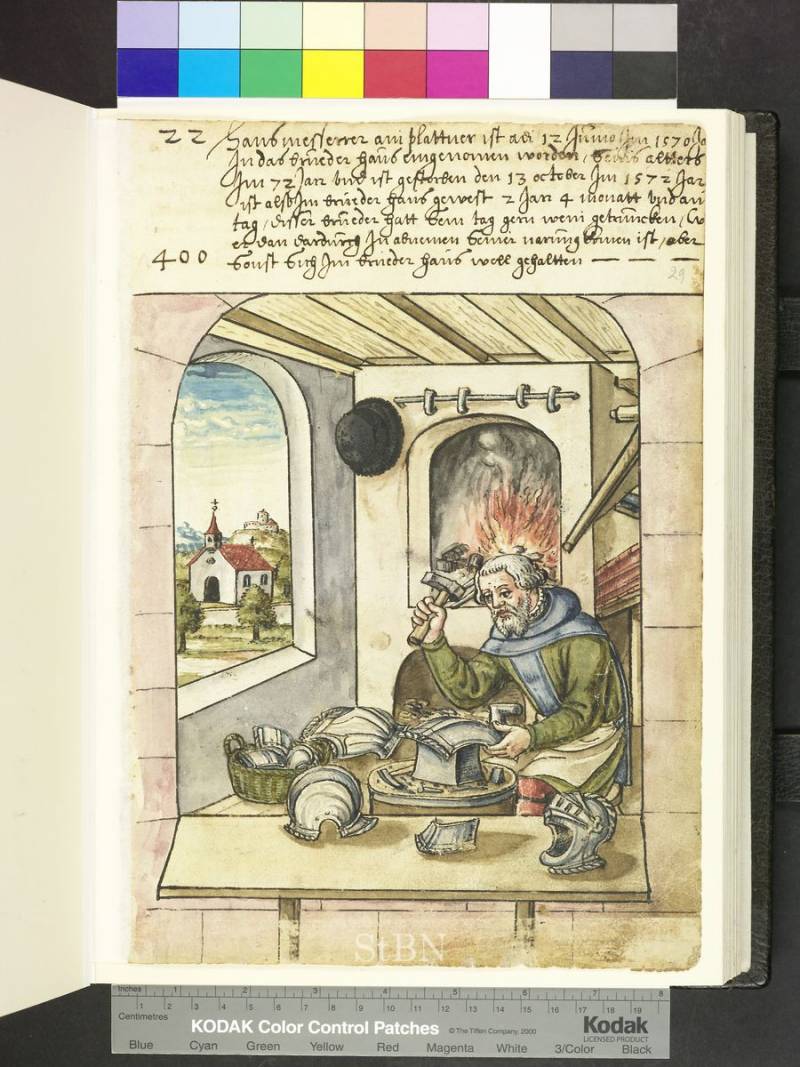 22 Hans messerer ain plattner ist adi 12 Junio Im 1570 Ja
In das brueder haus eingenomen worden, seins alters
Im 72 Jar und ist gestorben den 13 october Im 1572 Jar
ist also Im brueder haus gewest 2 Jar 4 monatt und ain
tag, disser brueder hatt sein tag gern wein getruncken,
er dan dardurch In abnemen seiner narung komen ist, aber
400 sonst sich Im brueder haus woll gehaltten — — —
29
StBN
Inches 1 2 3 4 5 6 7 8
Centimetres 1 2 3 4 5 6 7 8 9 10 11 12 13 14 15 16 17 18 19
KODAK Color Control Patches © The Tiffen Company, 2000 Kodak
LICENSED PRODUCT
Blue Cyan Green Yellow Red Magenta White 3/Color Black